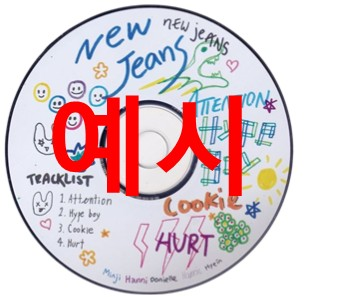 New Jeans
new jeans
ATTENTION
HYPE BOY
예시
TRACKLIST
1. Attention
2. Hype boy
3. Cookie
4. Hurt
COOKIE
HURT
Minji Hanni Danielle Haerin Hyein